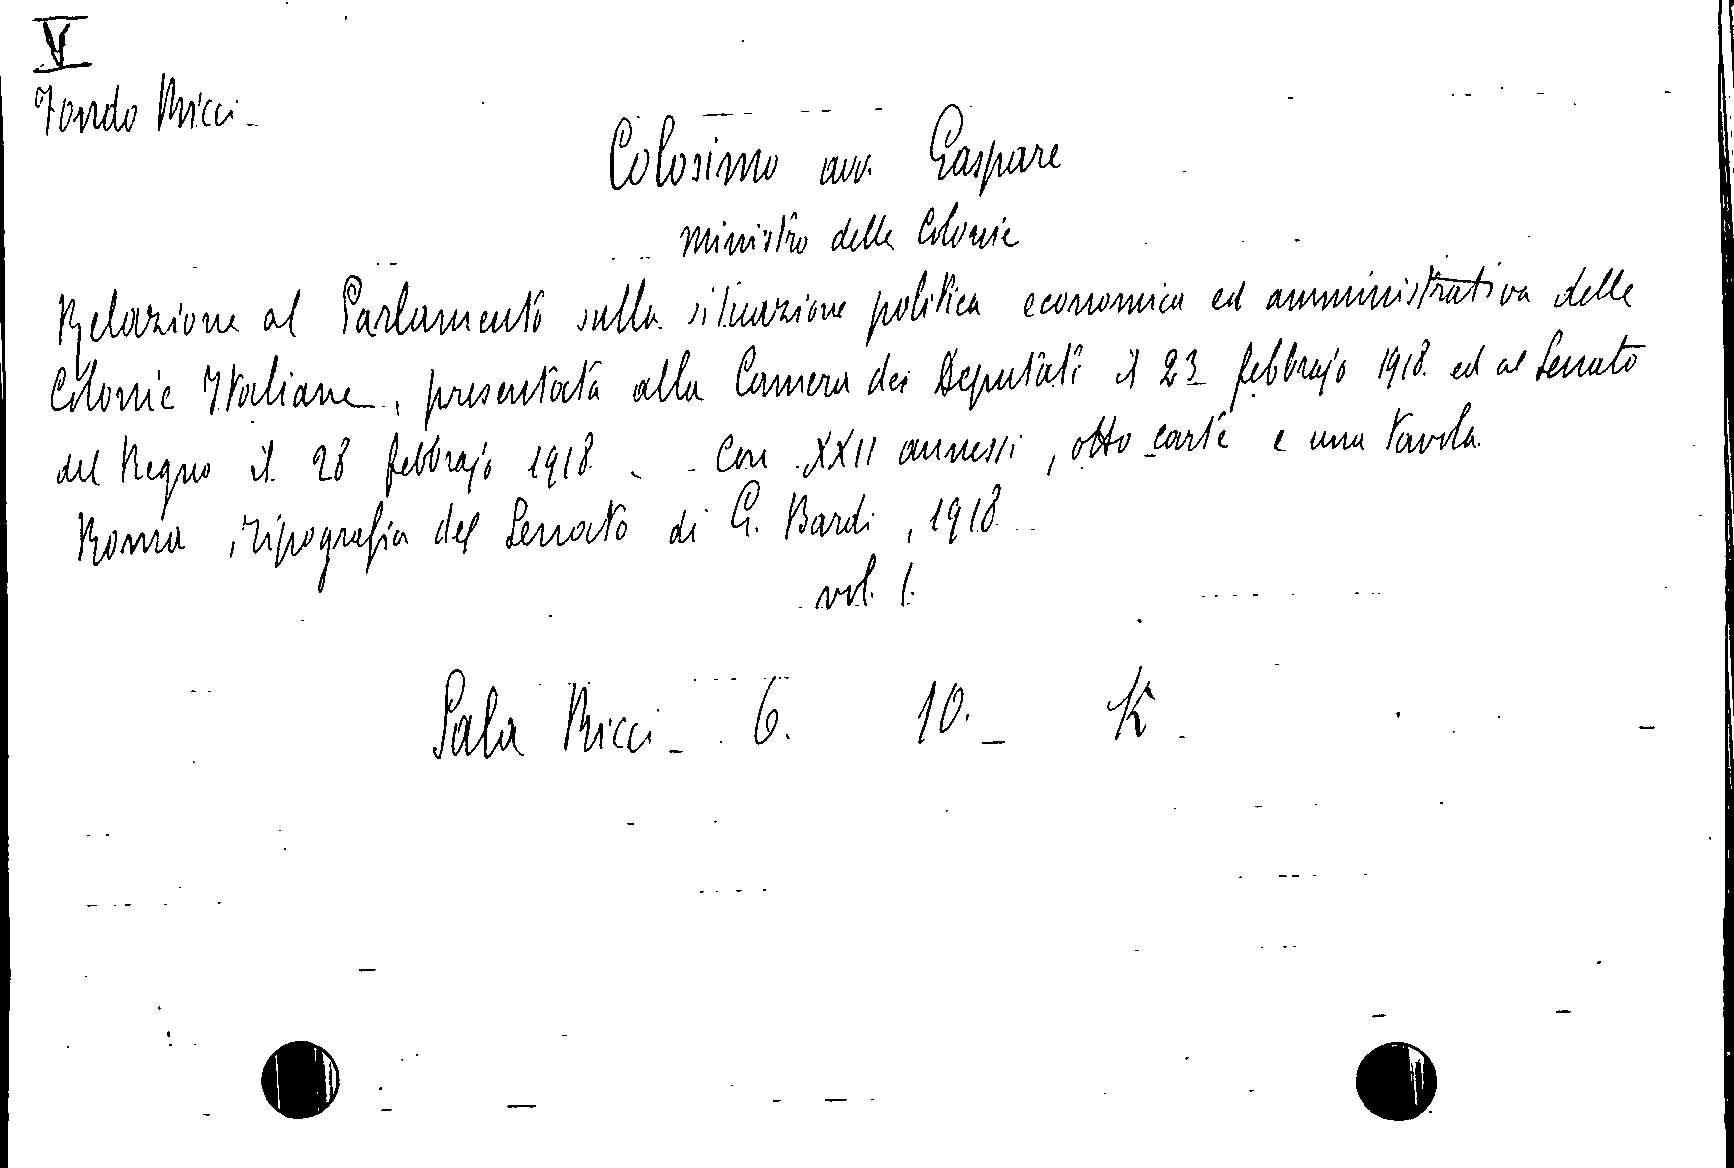 V
Fondo Ricci -
Colosimo avv. Gaspare
Ministro delle Colonie
Relazione al Parlamento sulla situazione politica economica ed amministrativa delle
Colonie Italiane, presentata alla Camera dei Deputati il 23 febbrajo 1918. ed al Senato
del Regno il 28 febbrajo 1918 - Con XXII annessi, otto carte e una tavola
Roma, Tipografia del Senato di G. Bardi, 1918
vol. 1.
Sala Ricci - 6. 10. - K